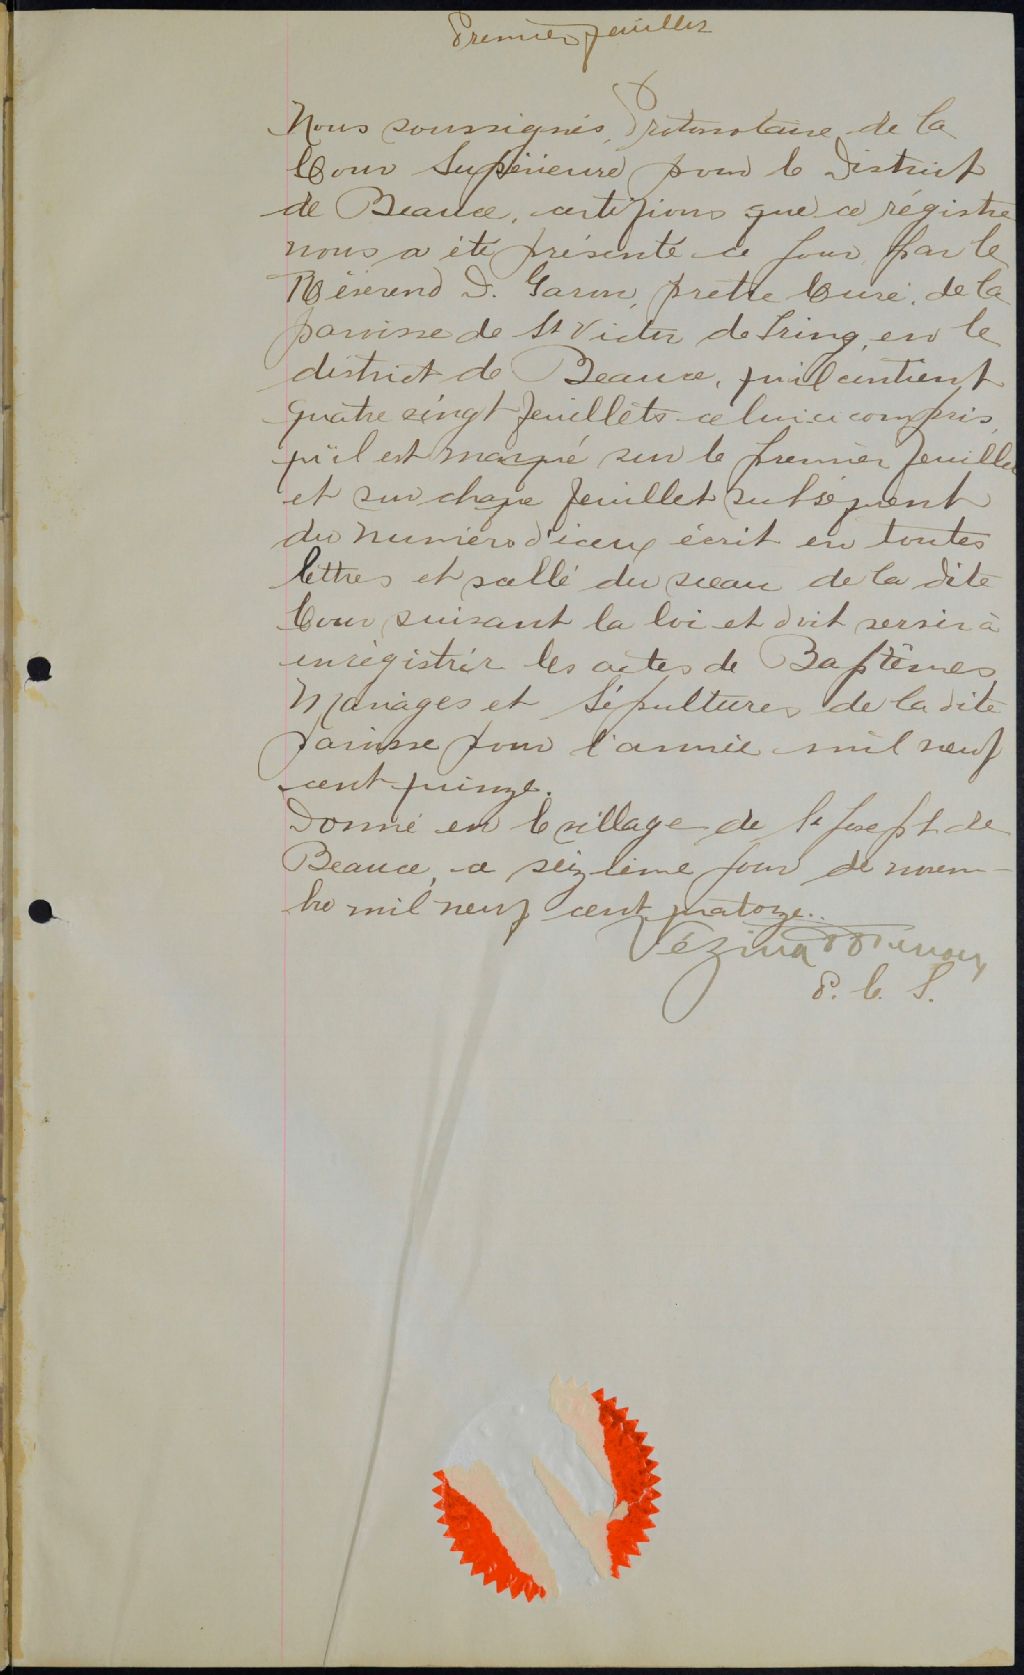 Premier feuillet
Nous soussignés, Protonotaire de la
Cour Supérieure pour le District
de Beauce, certifions que ce régistre
nous a été présenté ce jour, par le
Révérend D. Garon, prêtre Curé, de la
paroisse de St Victor de Tring, en le
district de Beauce, qu'il contient
quatre vingt feuillets celui ci compris,
qu'il est marqué sur le premier feuillet
et sur chaque feuillet subséquent
du numéro d'iceux écrit en toutes
lettres et scellé du sceau de la dite
Cour suivant la loi et doit servir à
enrégistrer les actes de Baptêmes
Mariages et Sépultures de la dite
Paroisse pour l'année mil neuf
cent quinze.
Donné en le village de St Joseph de
Beauce, ce seizième jour de novem-
bre mil neuf cent quatorze..
Vézina
P. C. S.